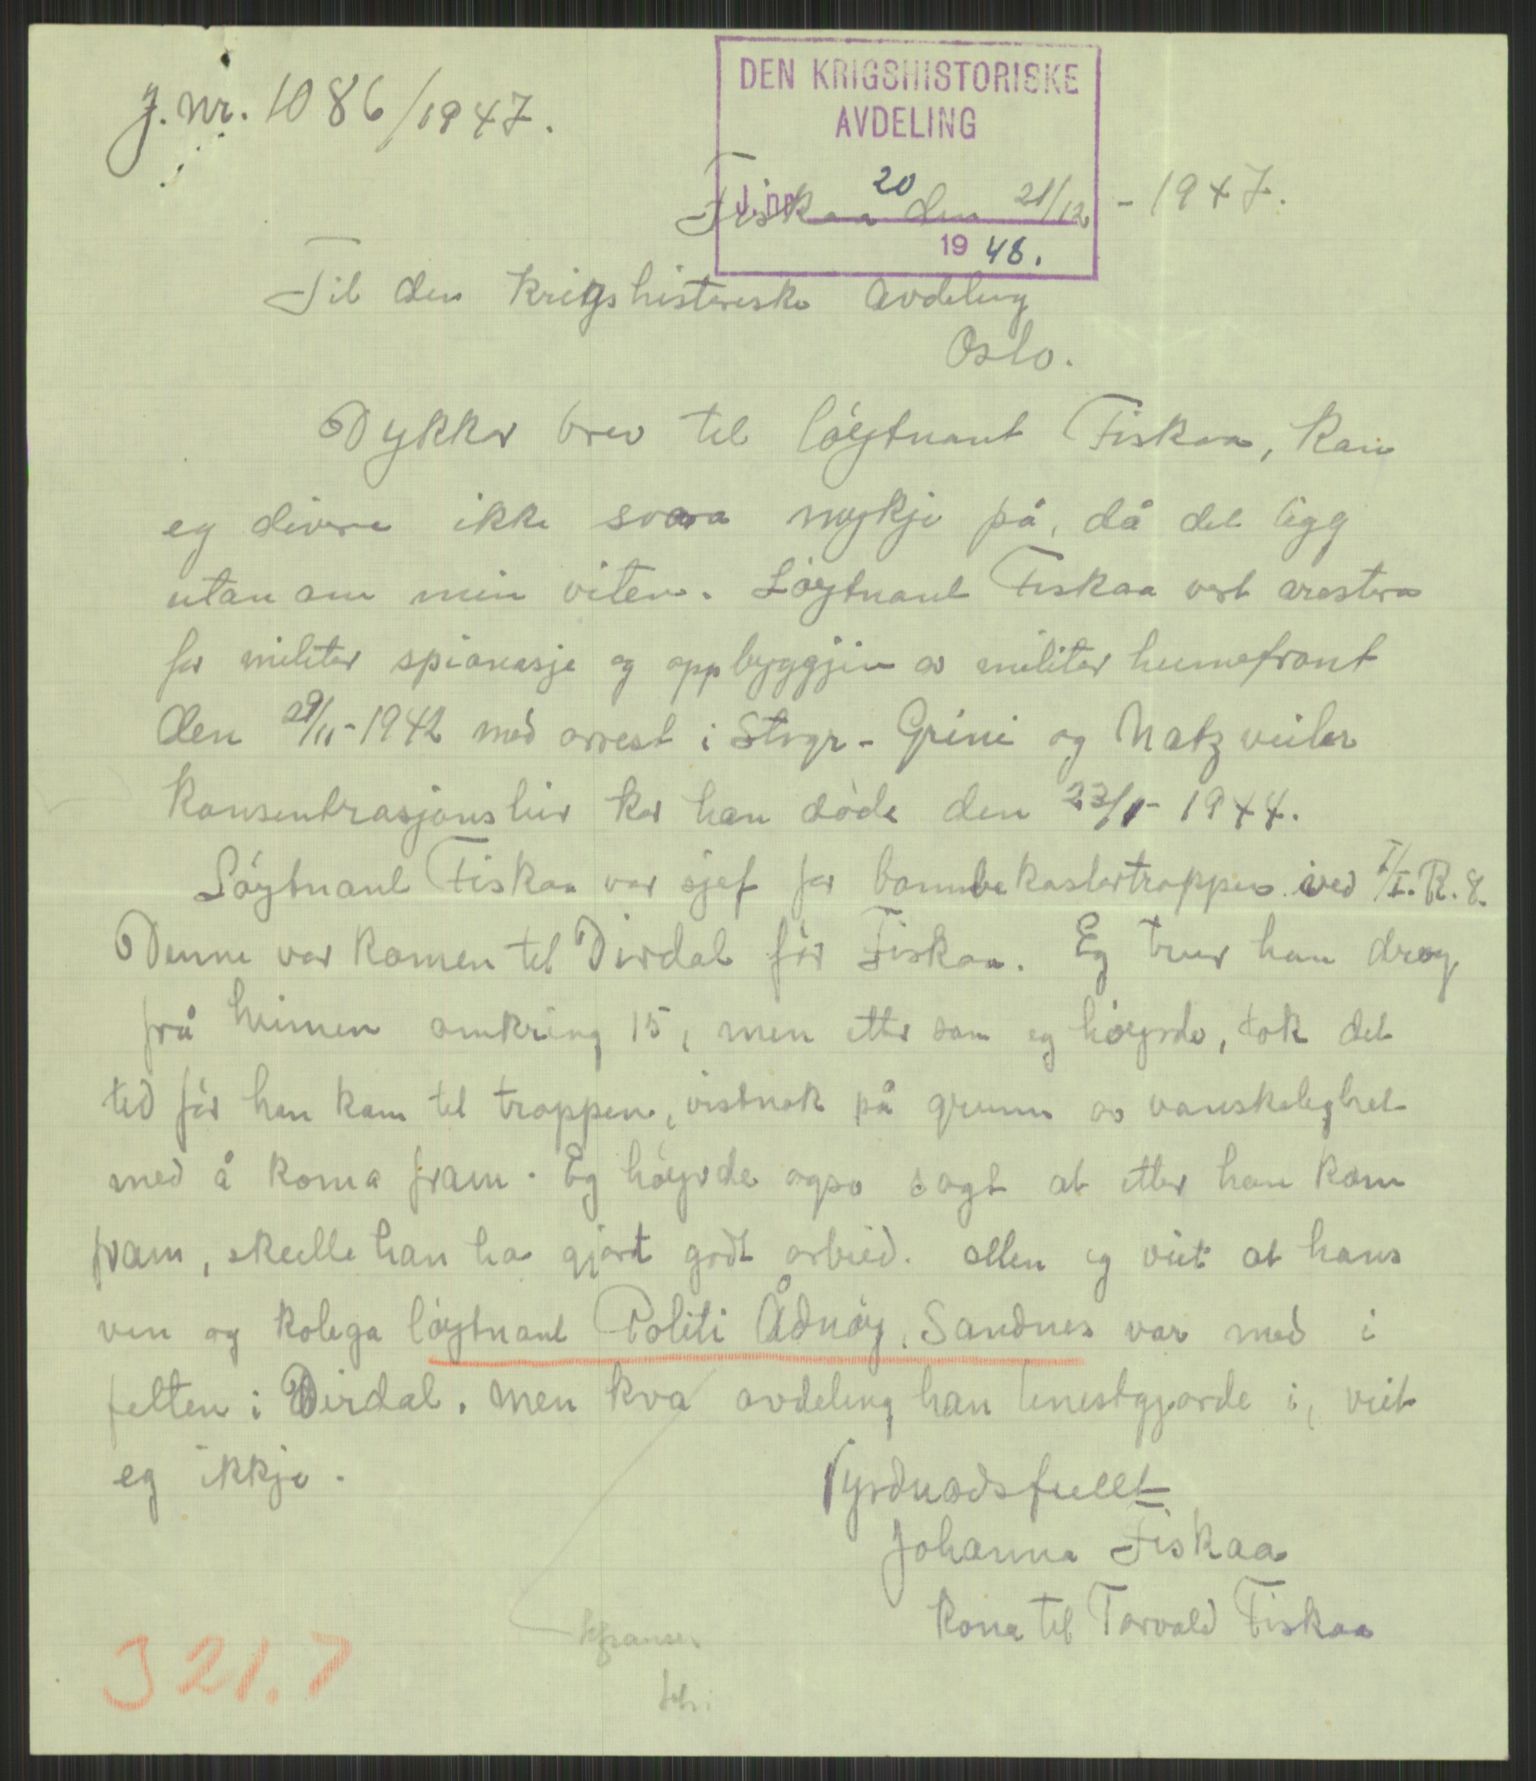 J. nr. 1086/1947.
DEN KRIGSHISTORISKE
AVDELING
J.nr. 20
1948.
Fiskaa den 21/12 - 1947.
Til den krigshistoriske Avdeling
Oslo.
Dykkar brev til löytnant Fiskaa, kan
eg divere ikke svara mykje på, då det ligg
utan om min viten. Löytnant Fiskaa vert arestera
for militær spionasje og oppbyggjin av militær heimefront
den 29/11-1942 med arrest i Stvgr - Grini og Natzveiler
konsentrasjonsleir kor han döde den 23/1-1944.
Löytnant Fiskaa var sjef for bombekastertroppen ved I/I.R.8.
Denne var komen til Dirdal för Fiskaa. Eg trur han drog
frå heimen omkring 15, men etter som eg höyrde, tok det
tid för han kom til troppen, vistnok på grunn av vanskelighet
med å koma fram. Eg höyrde også sagt at etter han kom
fram, skulle han ha gjort godt arbeid. Men eg veit at hans
ven og kolega löytnant Politi Ådnöy, Sandnes var med i
felten i Dirdal. Men kva avdeling han tenestgjorde i, veit
eg ikkje.
Vyrdnadsfullt
Johanna Fiskaa
kona til Torvald Fiskaa
321.7